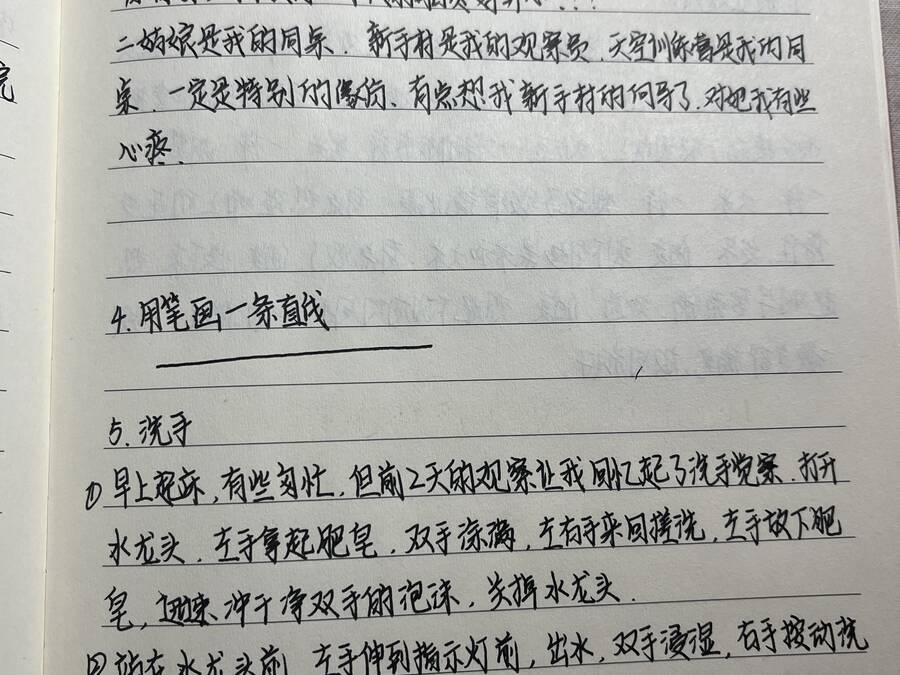 二姑娘是我的同桌，新手村是我的观察员，天空训练营是我的同
桌，一定是特别的缘份、有点想我新手村的同哥了，对她我有些
心疼。
4.用笔画一条直线
5.洗手
①早上起床，有些匆忙，但前2天的观察让我回忆起了洗手觉察，打开
水龙头，左手拿起肥皂，双手涂满，左右手来回搓洗，左手放下肥
皂，迅速冲干净双手的泡沫，关掉水龙头．
②站在水龙头前，左手伸到指示灯前，出水，双手浸湿，右手按动洗
完